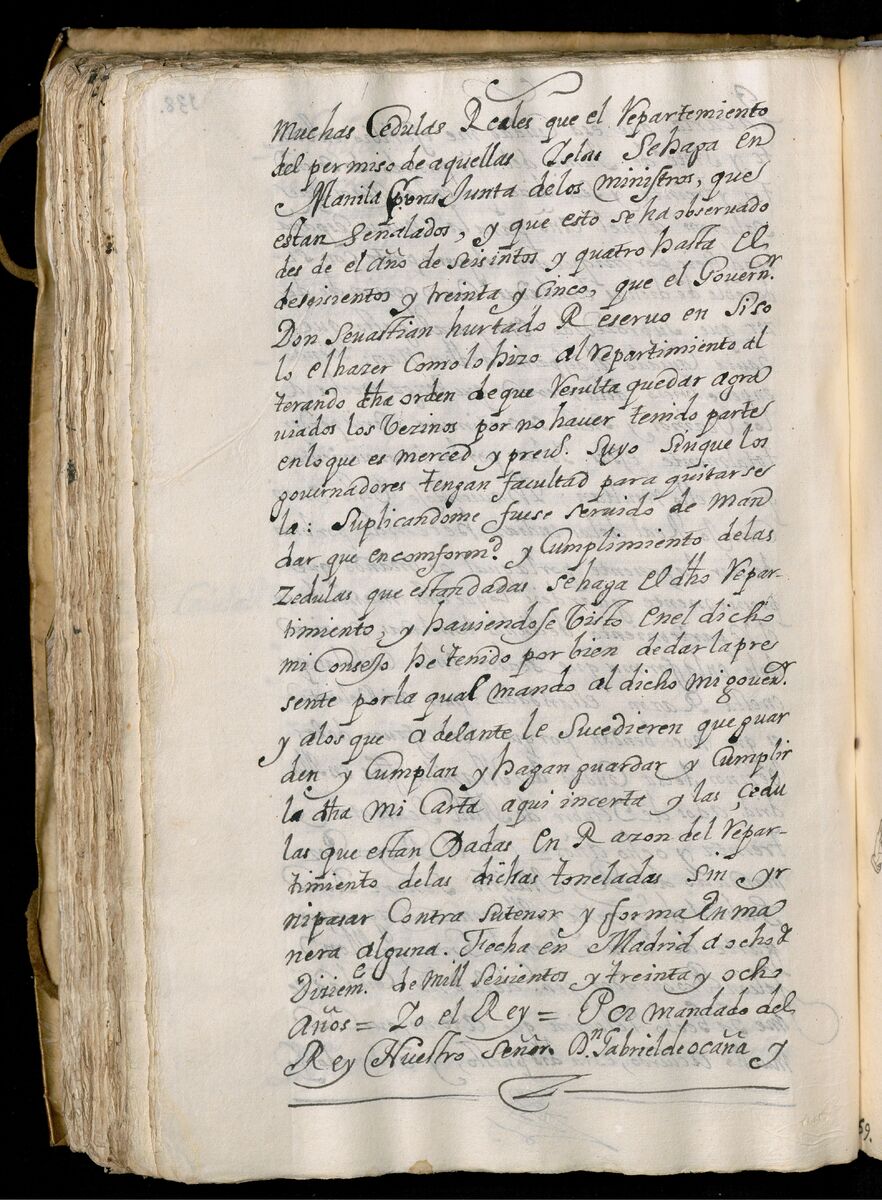 Muchas Cedulas Reales que el Repartemiento
del permiso de aquellas Islas Sehaga en
Manila por Junta delos ministros, que
estan Señalados, y que esto se ha observado
des de el año de seisintos y quatro hasta el
deseisientos y treinta y Cinco, que el Governr.
Don Sevastian hurtado Reservo en Si so
lo el hazer Como lo hizo al repartimiento al
terando dha orden de que resulta quedar agra
viados los Vezinos por no haver tenido parte
en lo que es merced y previl. Suyo Sin que los
governadores tengan facultad para quitarse
la: Suplicandome fuese servido de Man
dar que en comformd. y Cumplimiento delas
Zedulas que estan dadas se haga el dho Repar-
timiento, y haviendose Visto enel dicho
mi Consejo hé tenido por bien de dar la pre
sente por la qual mando al dicho mi goverr.
y alos que adelante le Sucedieren que guar
den y Cumplan y hagan guardar y Cumplir
la dha Mi Carta aqui incerta y las çedu
las que estan Dadas en Razon del repar-
timiento delas dichas toneladas sin yr
nipasar Contra sutenor y forma En ma
nera alguna. Fecha en Madrid a ocho de
Dizieme. de Mill Seiientos y treinta y ocho
Años = Yo el Rey = Por mandado del
Rey Nuestro Señor. Dn. Gabriel de ocaña y